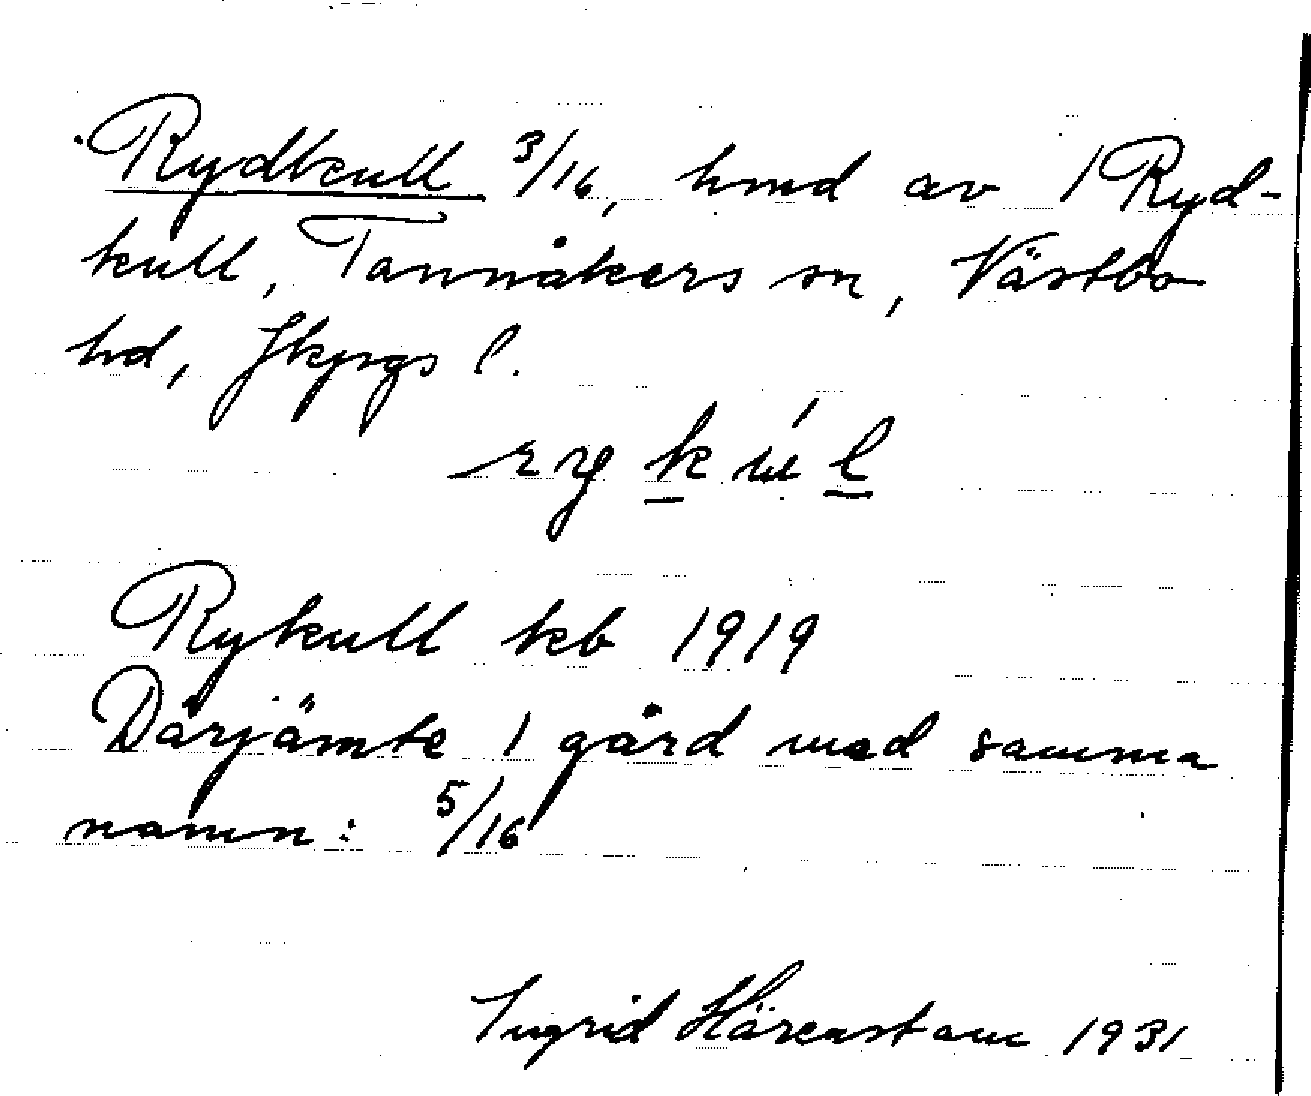 Rydkull 3/16, hmd av 1 Ryd-
kull, Tannåkers sn, Västbo
hd, Jkpgs l.
Rykull kb 1919
Därjämte 1 gård med samma
namn: 5/16
Ingrid Härenstam 1931